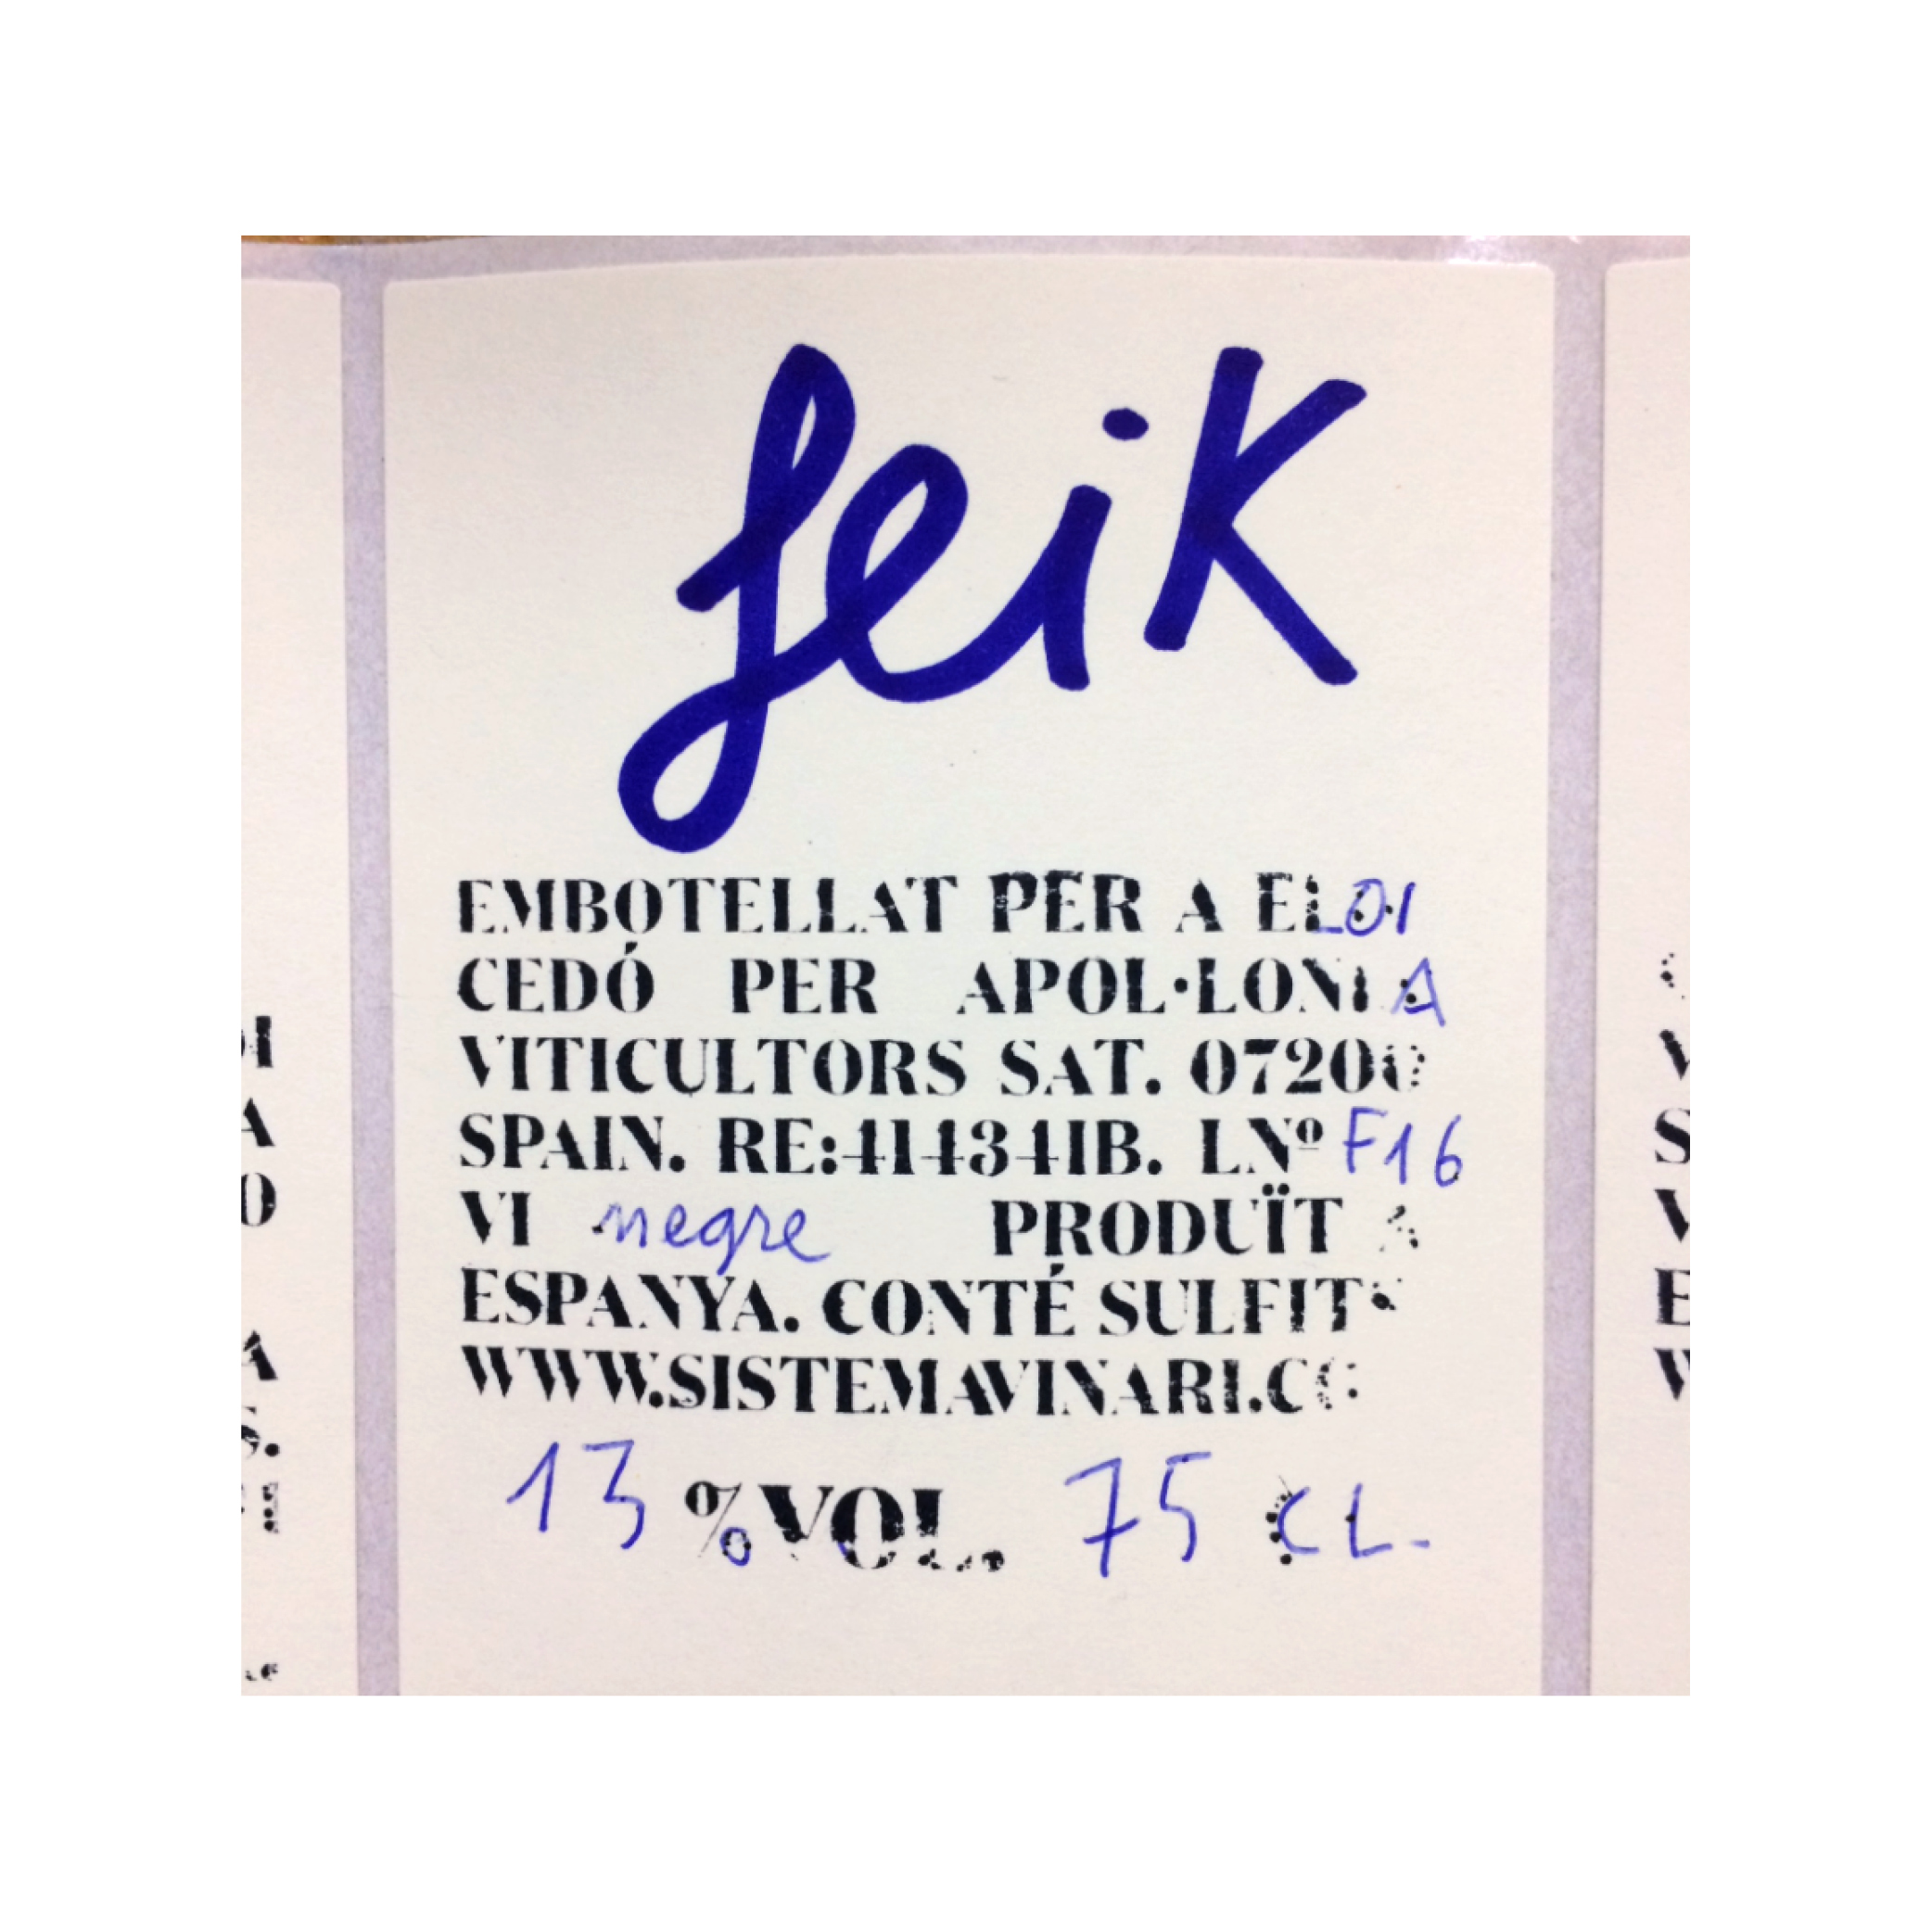 feiK
EMBOTELLAT PER A ELOI
CEDÓ PER APOL·LONIA
VITICULTORS SAT. 07200
SPAIN. RE:414341B. LNº F16
VI negre PRODUÏT A
ESPANYA. CONTÉ SULFITS
WWW.SISTEMAVINARI.CO
13 %VOL. 75 CL.